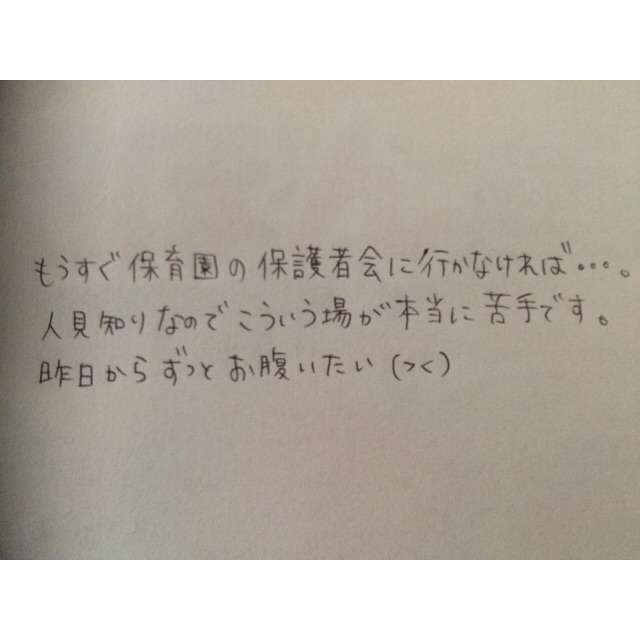 もうすぐ保育園の保護者会に行かなければ…。
人見知りなのでこういう場が本当に苦手です。
昨日からずっとお腹いたい(つく)